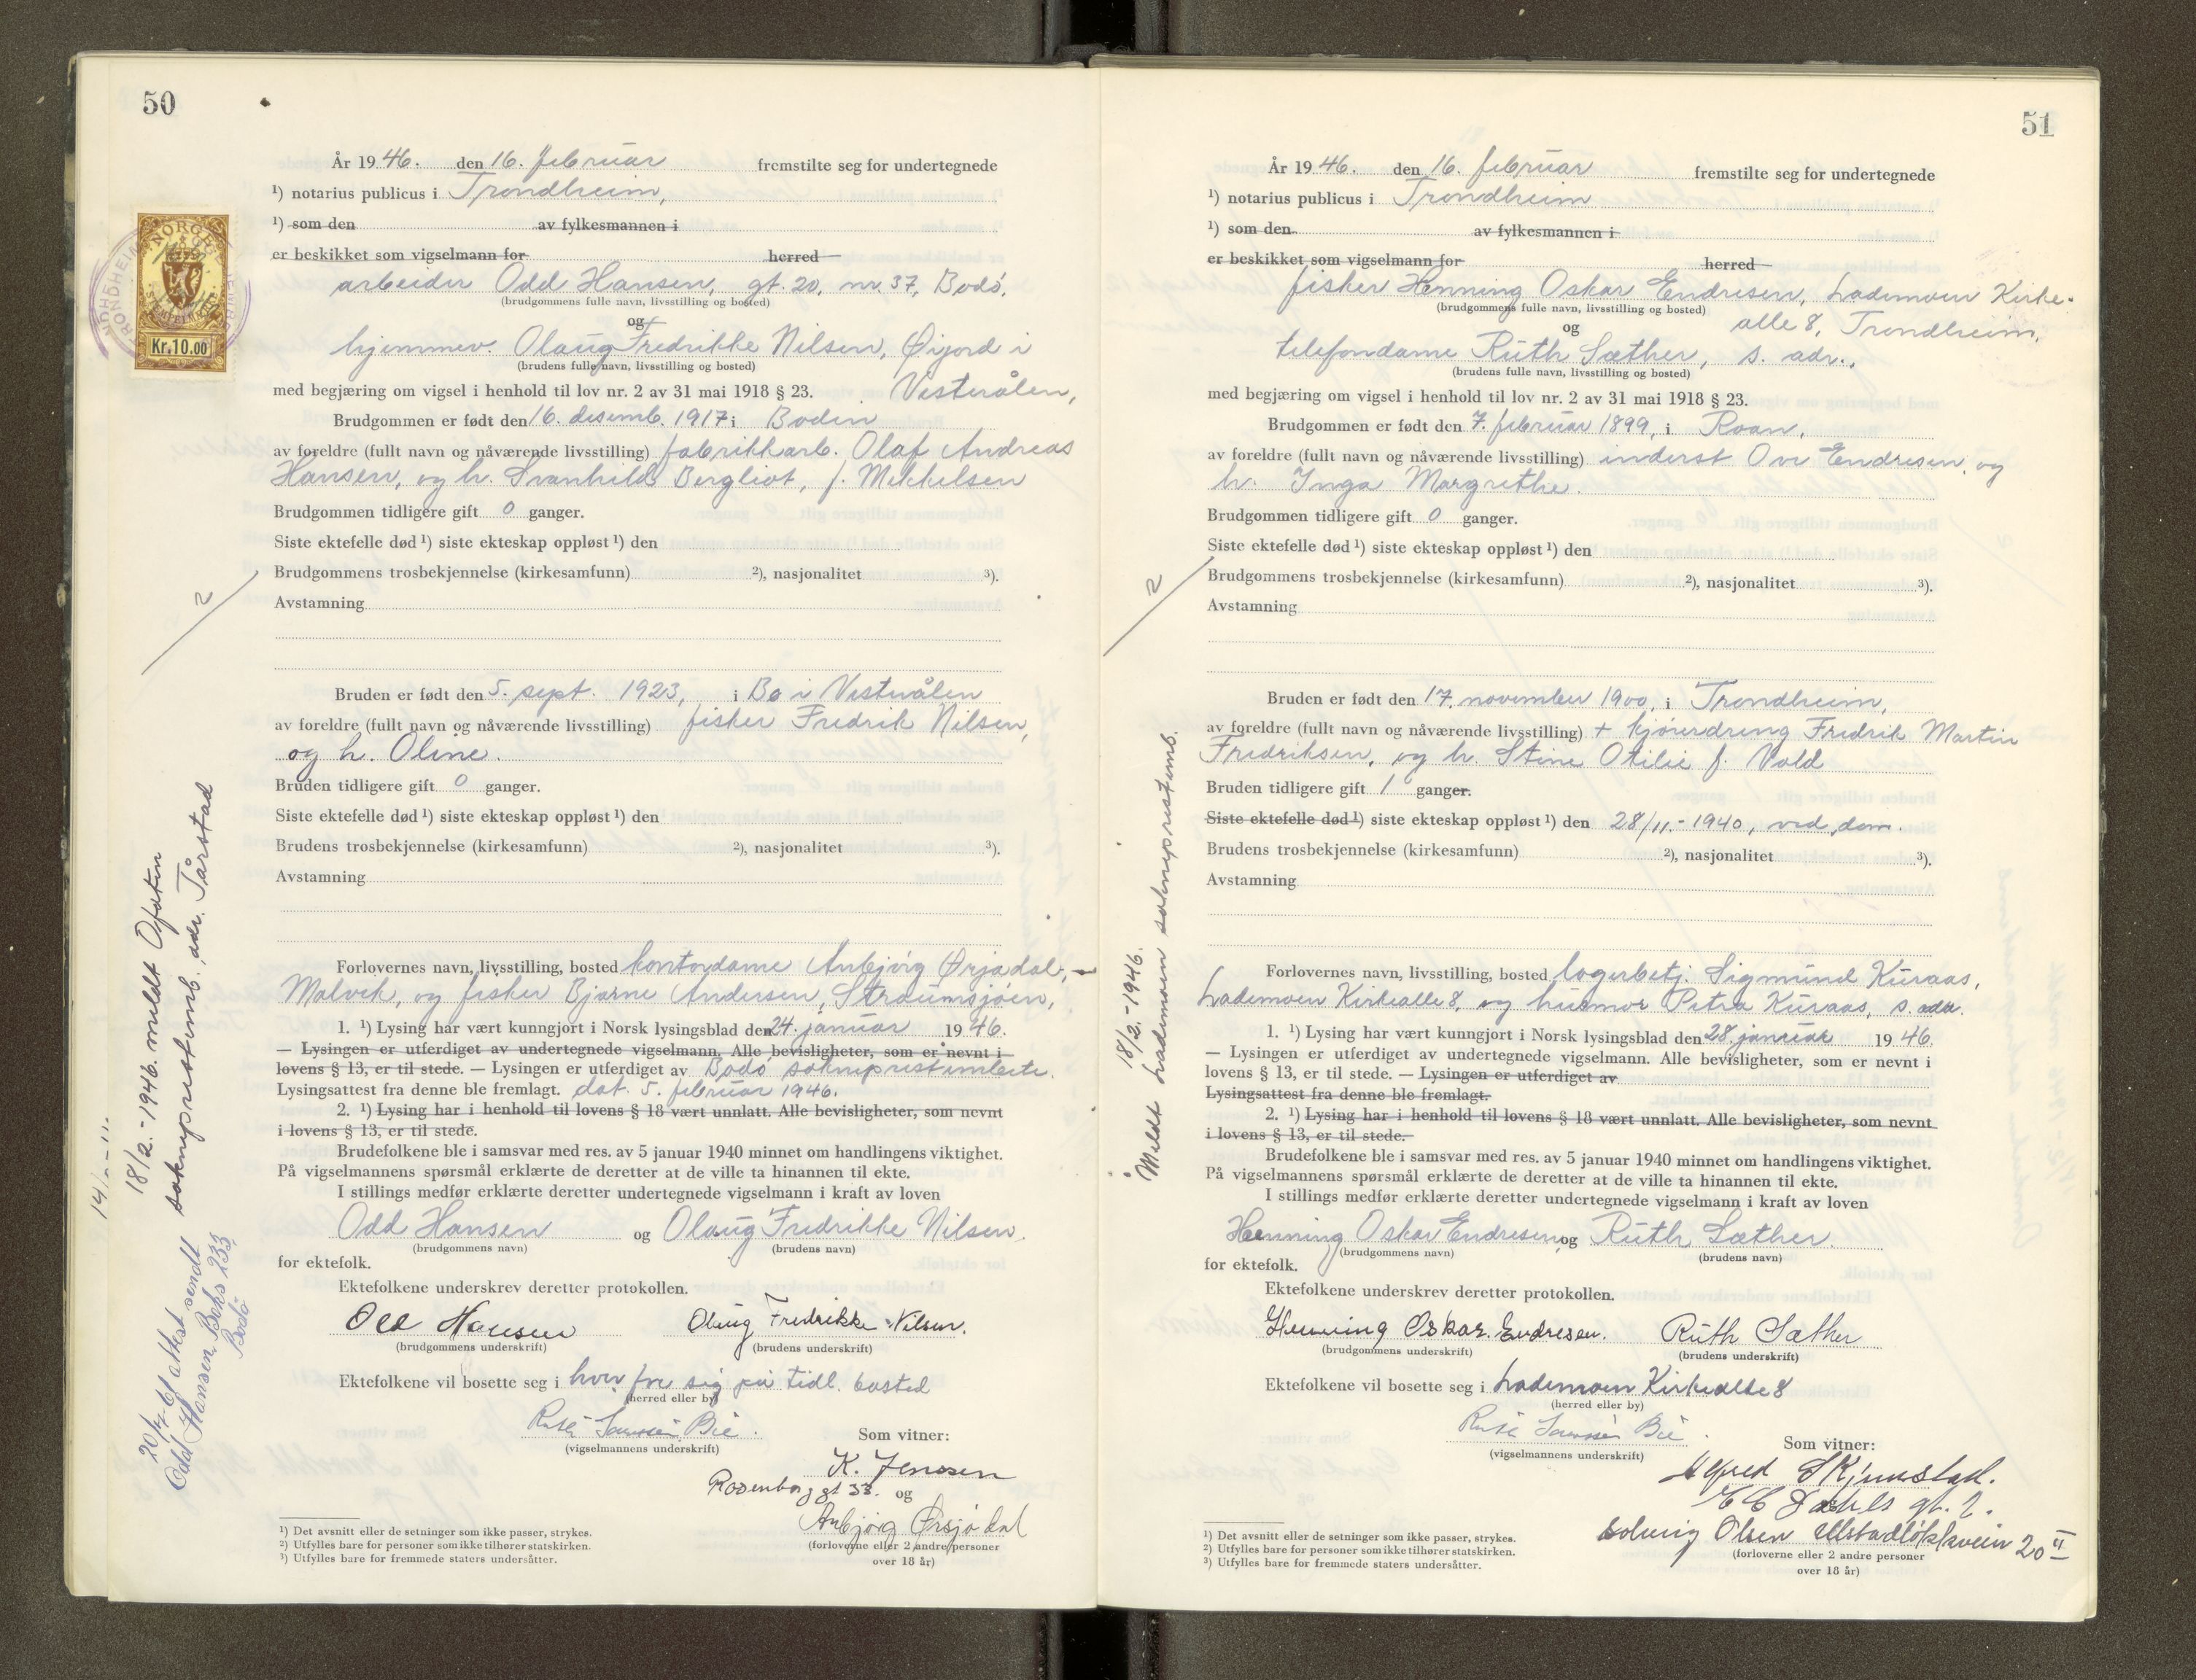 50
År 1946. den 16. februar fremstilte seg for undertegnede
¹) notarius publicus i Trondheim,
¹) som den av fylkesmannen i
er beskikket som vigselmann for herred
arbeider Odd Hansen, gt. 20, nr. 37, Bodö,
(brudgommens fulle navn, livsstilling og bosted)
og
hjemmev. Olaug Fredrikke Nilsen, Øijord i
(brudens fulle navn, livsstilling og bosted)
med begjæring om vigsel i henhold til lov nr. 2 av 31 mai 1918 § 23. Vesterålen,
Brudgommen er født den 16. desemb. 1917 i Bodin
av foreldre (fullt navn og nåværende livsstilling) fabrikkarb. Olaf Andreas
Hansen, og h. Svanhild Bergliot, f. Mikkelsen
Brudgommen tidligere gift 0 ganger.
Siste ektefelle død ¹) siste ekteskap oppløst ¹) den
Brudgommens trosbekjennelse (kirkesamfunn) ²), nasjonalitet ³).
Avstamning
Bruden er født den 5. sept. 1923, i Bø i Vesterålen
av foreldre (fullt navn og nåværende livsstilling) fisker Fredrik Nilsen,
og h. Oline.
Bruden tidligere gift 0 ganger.
Siste ektefelle død ¹) siste ekteskap oppløst ¹) den
Brudens trosbekjennelse (kirkesamfunn) ²), nasjonalitet ³).
Avstamning
Forlovernes navn, livsstilling, bosted kontordame Anbjörg Ørjadal,
Malvik, og fisker Bjarne Andersen, Straumsjöen,
1. ¹) Lysing har vært kunngjort i Norsk lysingsblad den 24. januar 1946.
— Lysingen er utferdiget av undertegnede vigselmann. Alle bevisligheter, som er nevnt i
lovens § 13, er til stede. — Lysingen er utferdiget av Bodö sokneprestembete.
Lysingsattest fra denne ble fremlagt. dat. 5. februar 1946.
2. ¹) Lysing har i henhold til lovens § 18 vært unnlatt. Alle bevisligheter, som nevnt
i lovens § 13, er til stede.
Brudefolkene ble i samsvar med res. av 5 januar 1940 minnet om handlingens viktighet.
På vigselmannens spørsmål erklærte de deretter at de ville ta hinannen til ekte.
I stillings medfør erklærte deretter undertegnede vigselmann i kraft av loven
Odd Hansen og Olaug Fredrikke Nilsen.
(brudgommens navn) (brudens navn)
for ektefolk.
Ektefolkene underskrev deretter protokollen.
Odd Hansen Olaug Fredrikke Nilsen.
(brudgommens underskrift) (brudens underskrift)
Ektefolkene vil bosette seg i hver for sig på tidl. bosted
(herred eller by)
(vigselmannens underskrift)
Som vitner:
K. Jenssen
Rosenborg gt 33. og
Anbjörg Örsjödal
(forloverne eller 2 andre personer
over 18 år)
¹) Det avsnitt eller de setninger som ikke passer, strykes.
²) Utfylles bare for personer som ikke tilhører statskirken.
³) Utfylles bare for fremmede staters undersåtter.
NORGE
Kr. 10.00
14/2 - 11.
18/2.-1946. meldt Ofoten
sokneprestemb., adr. Tårstad
20/4-61 attest sendt
Odd Hansen, Boks 233,
Bodö
51
År 1946. den 16. februar fremstilte seg for undertegnede
¹) notarius publicus i Trondheim
¹) som den av fylkesmannen i
er beskikket som vigselmann for herred
fisker Henning Oskar Endresen, Lademoen Kirke-
(brudgommens fulle navn, livsstilling og bosted)
og alle 8, Trondheim,
telefondame Ruth Sæther, s. adr.,
(brudens fulle navn, livsstilling og bosted)
med begjæring om vigsel i henhold til lov nr. 2 av 31 mai 1918 § 23.
Brudgommen er født den 7. februar 1899, i Roan,
av foreldre (fullt navn og nåværende livsstilling) inderst Ove Endresen, og
h. Inga Margrethe.
Brudgommen tidligere gift 0 ganger.
Siste ektefelle død ¹) siste ekteskap oppløst ¹) den
Brudgommens trosbekjennelse (kirkesamfunn) ²), nasjonalitet ³).
Avstamning
Bruden er født den 17. november 1900, i Trondheim,
av foreldre (fullt navn og nåværende livsstilling) + kjöredreng Fredrik Martin
Fredriksen, og h. Stine Otilie f. Vold
Bruden tidligere gift 1 ganger.
Siste ektefelle død ¹) siste ekteskap oppløst ¹) den 28/11.-1940, ved dom.
Brudens trosbekjennelse (kirkesamfunn) ²), nasjonalitet ³).
Avstamning
Forlovernes navn, livsstilling, bosted lagerbetj. Sigmund Kuraas,
Lademoen Kirkealle 8, og husmor Petra Kuraas, s. adr.
1. ¹) Lysing har vært kunngjort i Norsk lysingsblad den 28. januar 1946.
— Lysingen er utferdiget av undertegnede vigselmann. Alle bevisligheter, som er nevnt i
lovens § 13, er til stede. — Lysingen er utferdiget av
Lysingsattest fra denne ble fremlagt.
2. ¹) Lysing har i henhold til lovens § 18 vært unnlatt. Alle bevisligheter, som nevnt
i lovens § 13, er til stede.
Brudefolkene ble i samsvar med res. av 5 januar 1940 minnet om handlingens viktighet.
På vigselmannens spørsmål erklærte de deretter at de ville ta hinannen til ekte.
I stillings medfør erklærte deretter undertegnede vigselmann i kraft av loven
Henning Oskar Endresen og Ruth Sæther.
(brudgommens navn) (brudens navn)
for ektefolk.
Ektefolkene underskrev deretter protokollen.
Henning Oskar. Endresen. Ruth Sæther
(brudgommens underskrift) (brudens underskrift)
Ektefolkene vil bosette seg i Lademoen Kirkealle 8
(herred eller by)
(vigselmannens underskrift)
Som vitner:
Alfred Skjensstad.
E C Dahls gt. 2.
Solveig Olsen 20 II
(forloverne eller 2 andre personer
over 18 år)
¹) Det avsnitt eller de setninger som ikke passer, strykes.
²) Utfylles bare for personer som ikke tilhører statskirken.
³) Utfylles bare for fremmede staters undersåtter.
18/2.-1946.
Meldt Lademoen sokneprestemb.